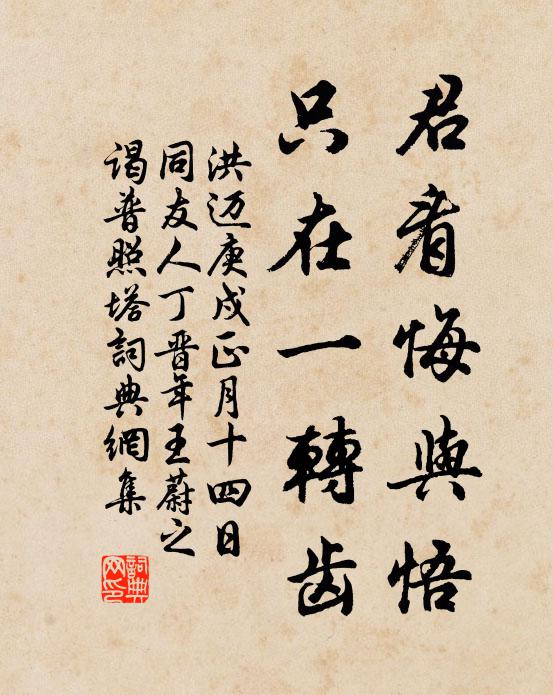 君看悔與悟
只在一轉齒
洪迈庚戍正月十四日
同友人丁晋年王蔚之
谒普照塔詞典網集
詞典网印